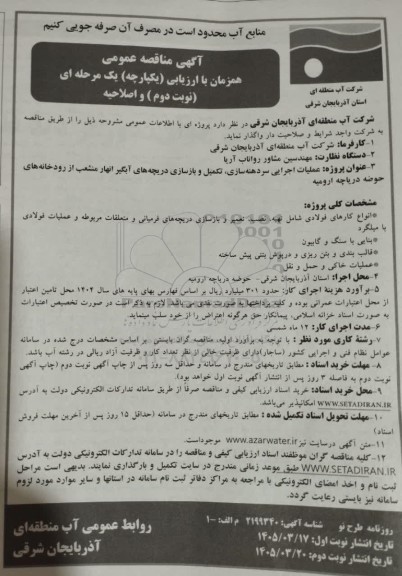 منابع آب محدود است در مصرف آن صرفه جویی کنیم
شرکت آب منطقه ای
استان آذربایجان شرقی
آگهی مناقصه عمومی
همزمان با ارزیابی (یکپارچه) یک مرحله ای
(نوبت دوم) و اصلاحیه
شرکت آب منطقه‌ای آذربایجان شرقی در نظر دارد پروژه ای با اطلاعات عمومی مشروحه ذیل را از طریق مناقصه
به شرکت واجد شرایط و صلاحیت دار واگذار نماید.
۱-کارفرما: شرکت آب منطقه‌ای آذربایجان شرقی
۲-دستگاه نظارت: مهندسین مشاور رواناب آریا
۳-عنوان پروژه: عملیات اجرایی سردهنه‌سازی، تکمیل و بازسازی دریچه‌های آبگیر انهار منشعب از رودخانه‌های
حوضه دریاچه ارومیه
مشخصات کلی پروژه:
*انواع کارهای فولادی شامل تهیه، نصب، تعمیر و بازسازی دریچه‌های فرمیانی و متعلقات مربوطه و عملیات فولادی
با میلگرد
*بنایی با سنگ و گابیون
*قالب بندی و بتن ریزی و درپوش بتنی پیش ساخته
*عملیات خاکی و حمل و نقل
۴-محل اجرا: استان آذربایجان شرقی- حوضه دریاچه ارومیه
۵-برآورد هزینۀ اجرای کار: حدود ۳۰۱ میلیارد ریال بر اساس فهارس بهای پایه های سال ۱۴۰۴ محل تامین اعتبار
از محل اعتبارات عمرانی بوده و کلیه پرداختها به صورت نقدی می باشد. لازم به ذکر است در صورت تخصیص اعتبارات
به صورت اسناد خزانه اسلامی، پیمانکار حق هرگونه اعتراض را از خود سلب مینماید.
۶-مدت اجرای کار: ۱۲ ماه شمسی
۷-رشتۀ کاری مورد نظر: با توجه به برآورد اولیه، مناقصه گران بایستی بر اساس مشخصات درج شده در سامانه
عوامل نظام فنی و اجرایی کشور (ساجار)دارای ظرفیت خالی از نظر تعداد کار و ظرفیت آزاد ریالی در رشته آب باشد.
۸-مهلت خرید اسناد: مطابق تاریخهای مندرج در سامانه و حداقل سه روز پس از چاپ آگهی نوبت دوم (چاپ آگهی
نوبت دوم به فاصله ۳ روز پس از انتشار آگهی نوبت اول خواهد بود).
۹-محل خرید اسناد: خرید اسناد ارزیابی کیفی و مناقصه صرفاً از طریق سامانه تدارکات الکترونیکی دولت به آدرس
WWW.SETADIRAN.IR امکانپذیر می‌باشد.
۱۰-مهلت تحویل اسناد تکمیل شده: مطابق تاریخهای مندرج در سامانه (حداقل ۱۵ روز پس از آخرین مهلت فروش
اسناد)
۱۱-متن آگهی درسایت نیز www.azarwater.ir موجوداست.
۱۲-کلیه مناقصه گران موظفند اسناد ارزیابی کیفی و مناقصه را در سامانه تدارکات الکترونیکی دولت به آدرس
WWW.SETADIRAN.IR طبق موعد زمانی مندرج در سایت تکمیل و بارگذاری نمایند. بدیهی است مراحل
ثبت نام و اخذ امضای الکترونیکی با مراجعه به مراکز دفاتر ثبت نام سامانه در استانها و سایر موارد مورد لزوم
سامانه نیز بایستی رعایت گردد.
روزنامه طرح نو شناسه آگهی: ۲۱۹۹۳۴۰ م الف: ۱۰۰
تاریخ انتشار نوبت اول: ۱۴۰۵/۰۳/۱۷
تاریخ انتشار نوبت دوم: ۱۴۰۵/۰۳/۲۰
روابط عمومی آب منطقه‌ای
آذربایجان شرقی